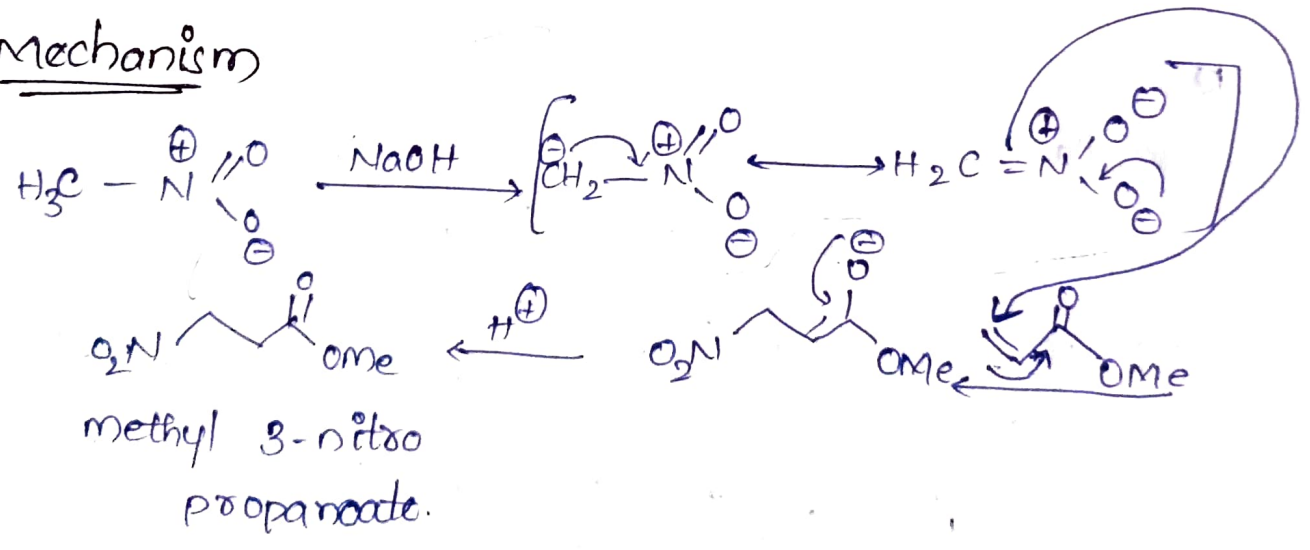 Mechanism
H3C – N⊕ (=O) O⊖ NaOH → [⊖CH2 – N⊕ (=O) O⊖ ↔ H2C = N⊕ O⊖ O⊖]
O2N O OMe ← H⊕ O2N O⊖ OMe ← O OMe
methyl 3-nitro
propanoate.